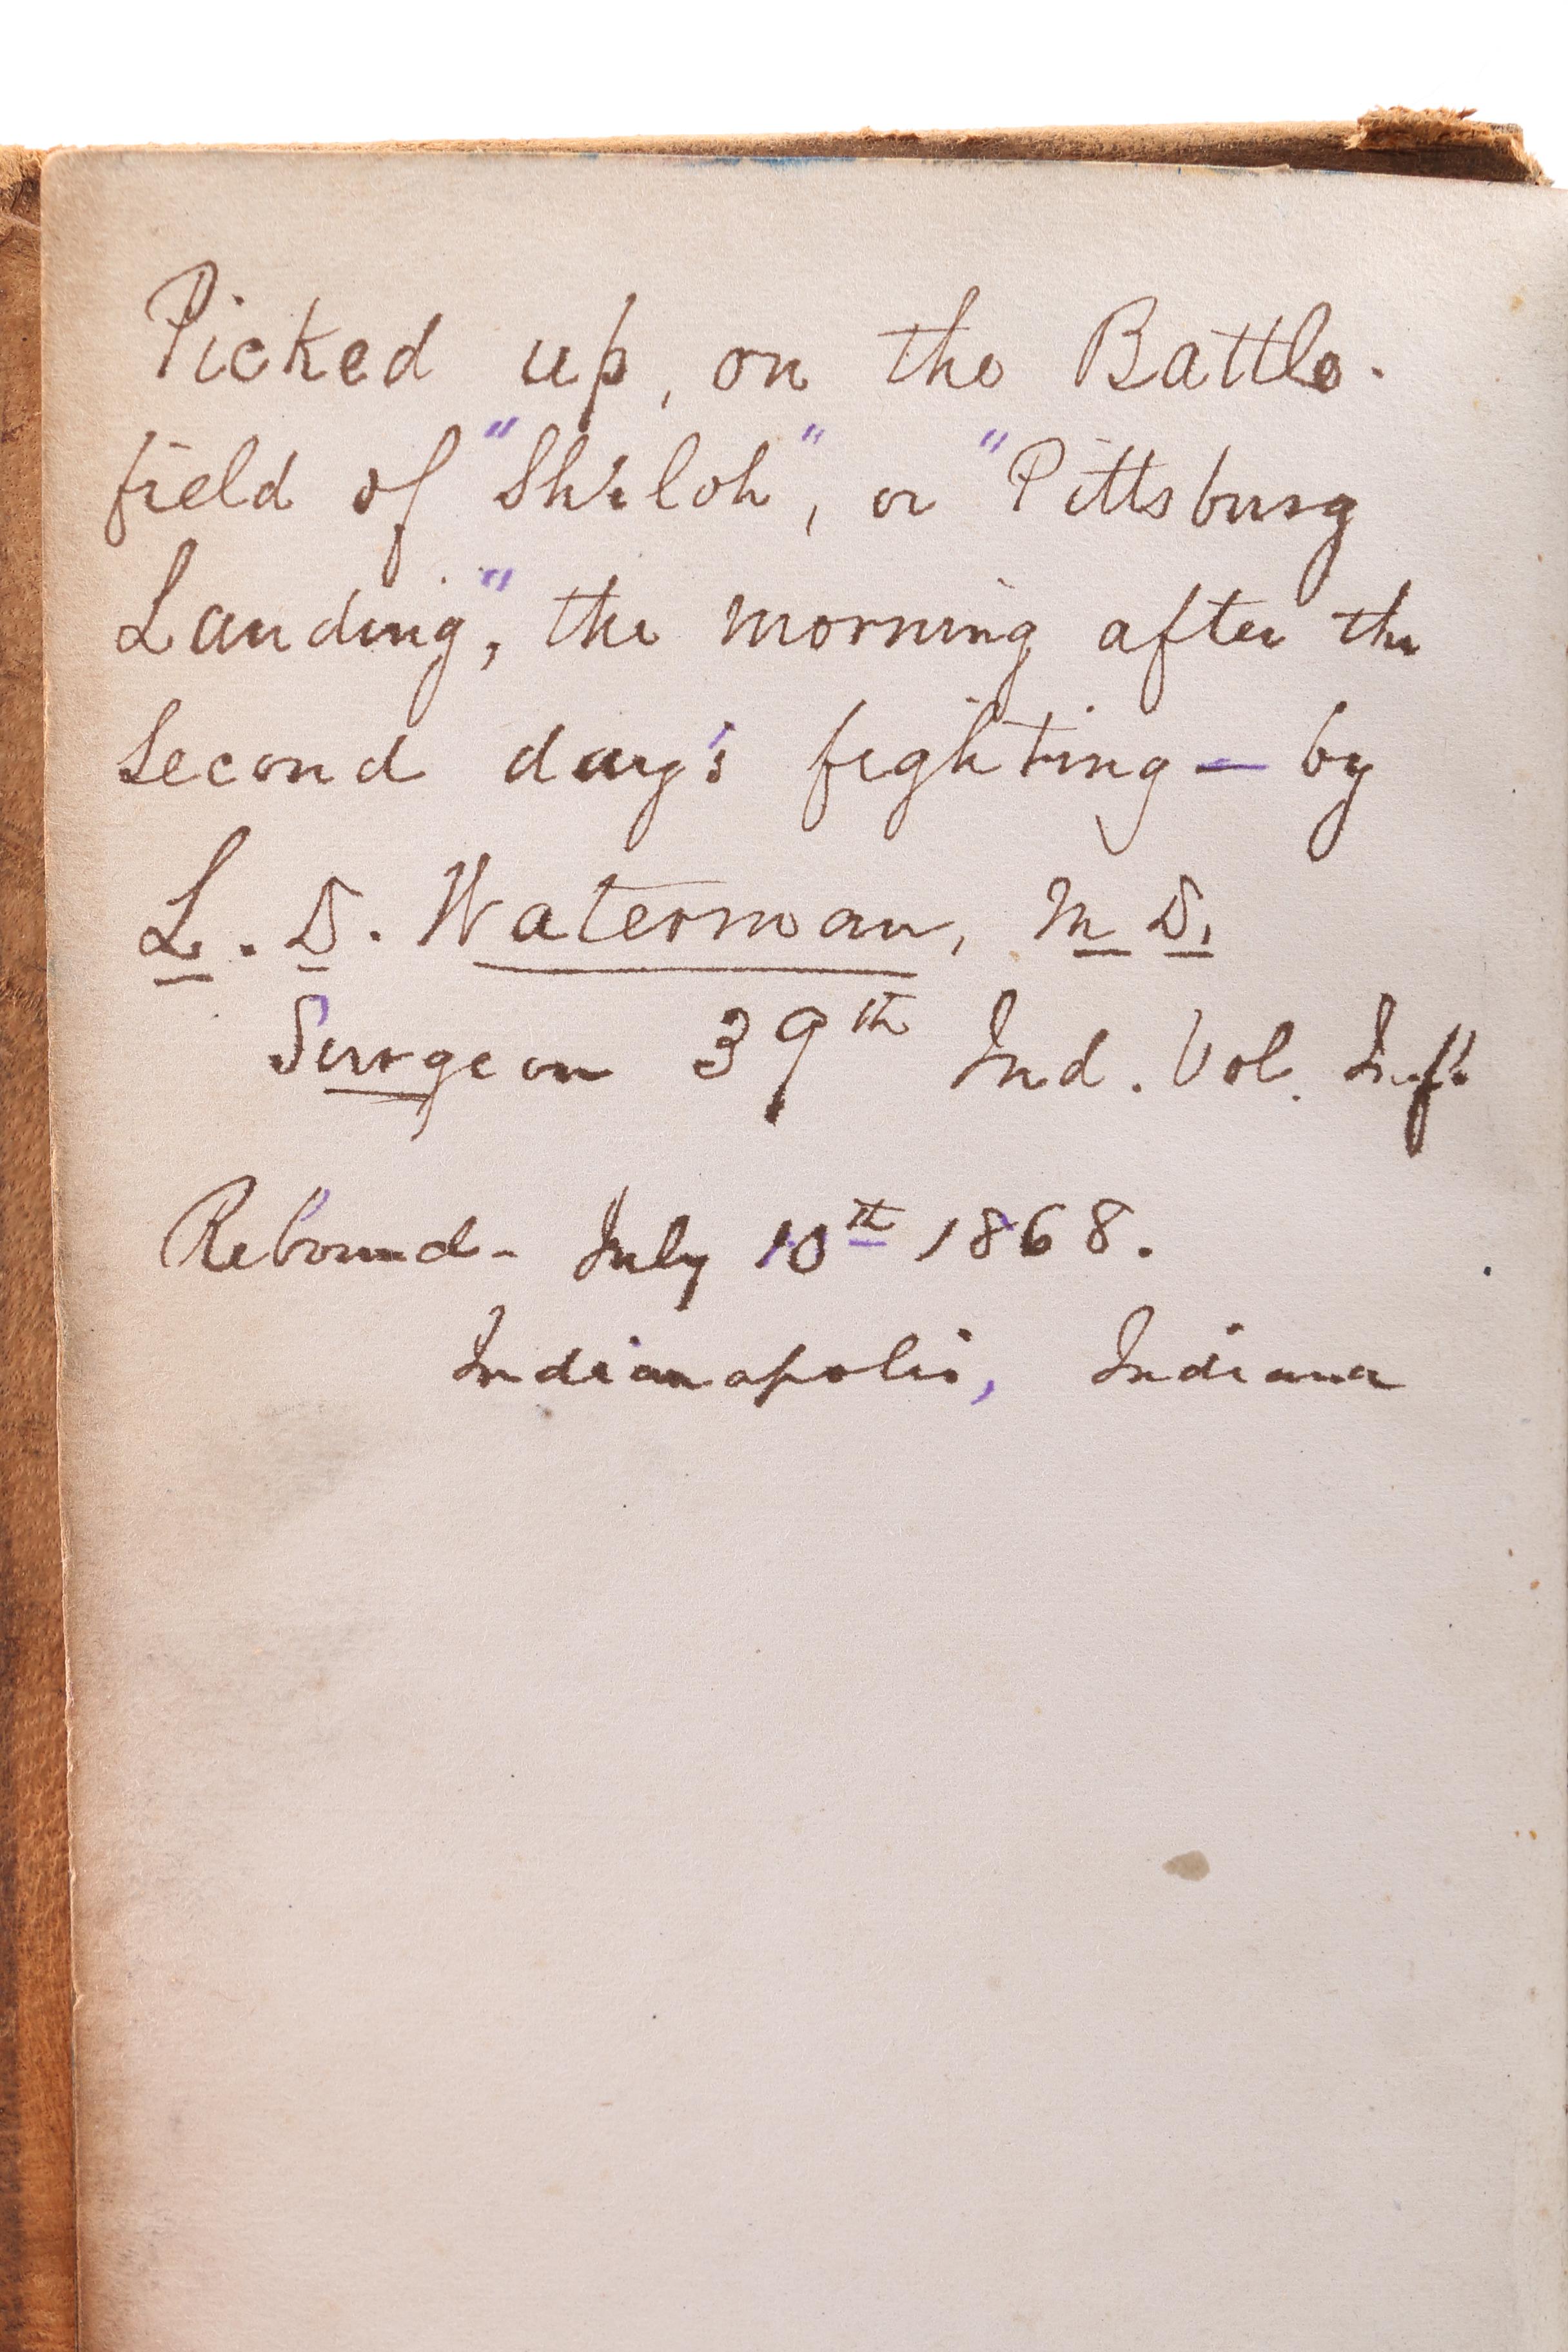 Picked up, on the Battle-
field of "Shiloh", or "Pittsburg
Landing", the morning after the
second day's fighting — by
L. D. Waterman, M D.
Surgeon 39th Ind. Vol. Inft.
Rebound - July 10th 1868.
Indianapolis, Indiana